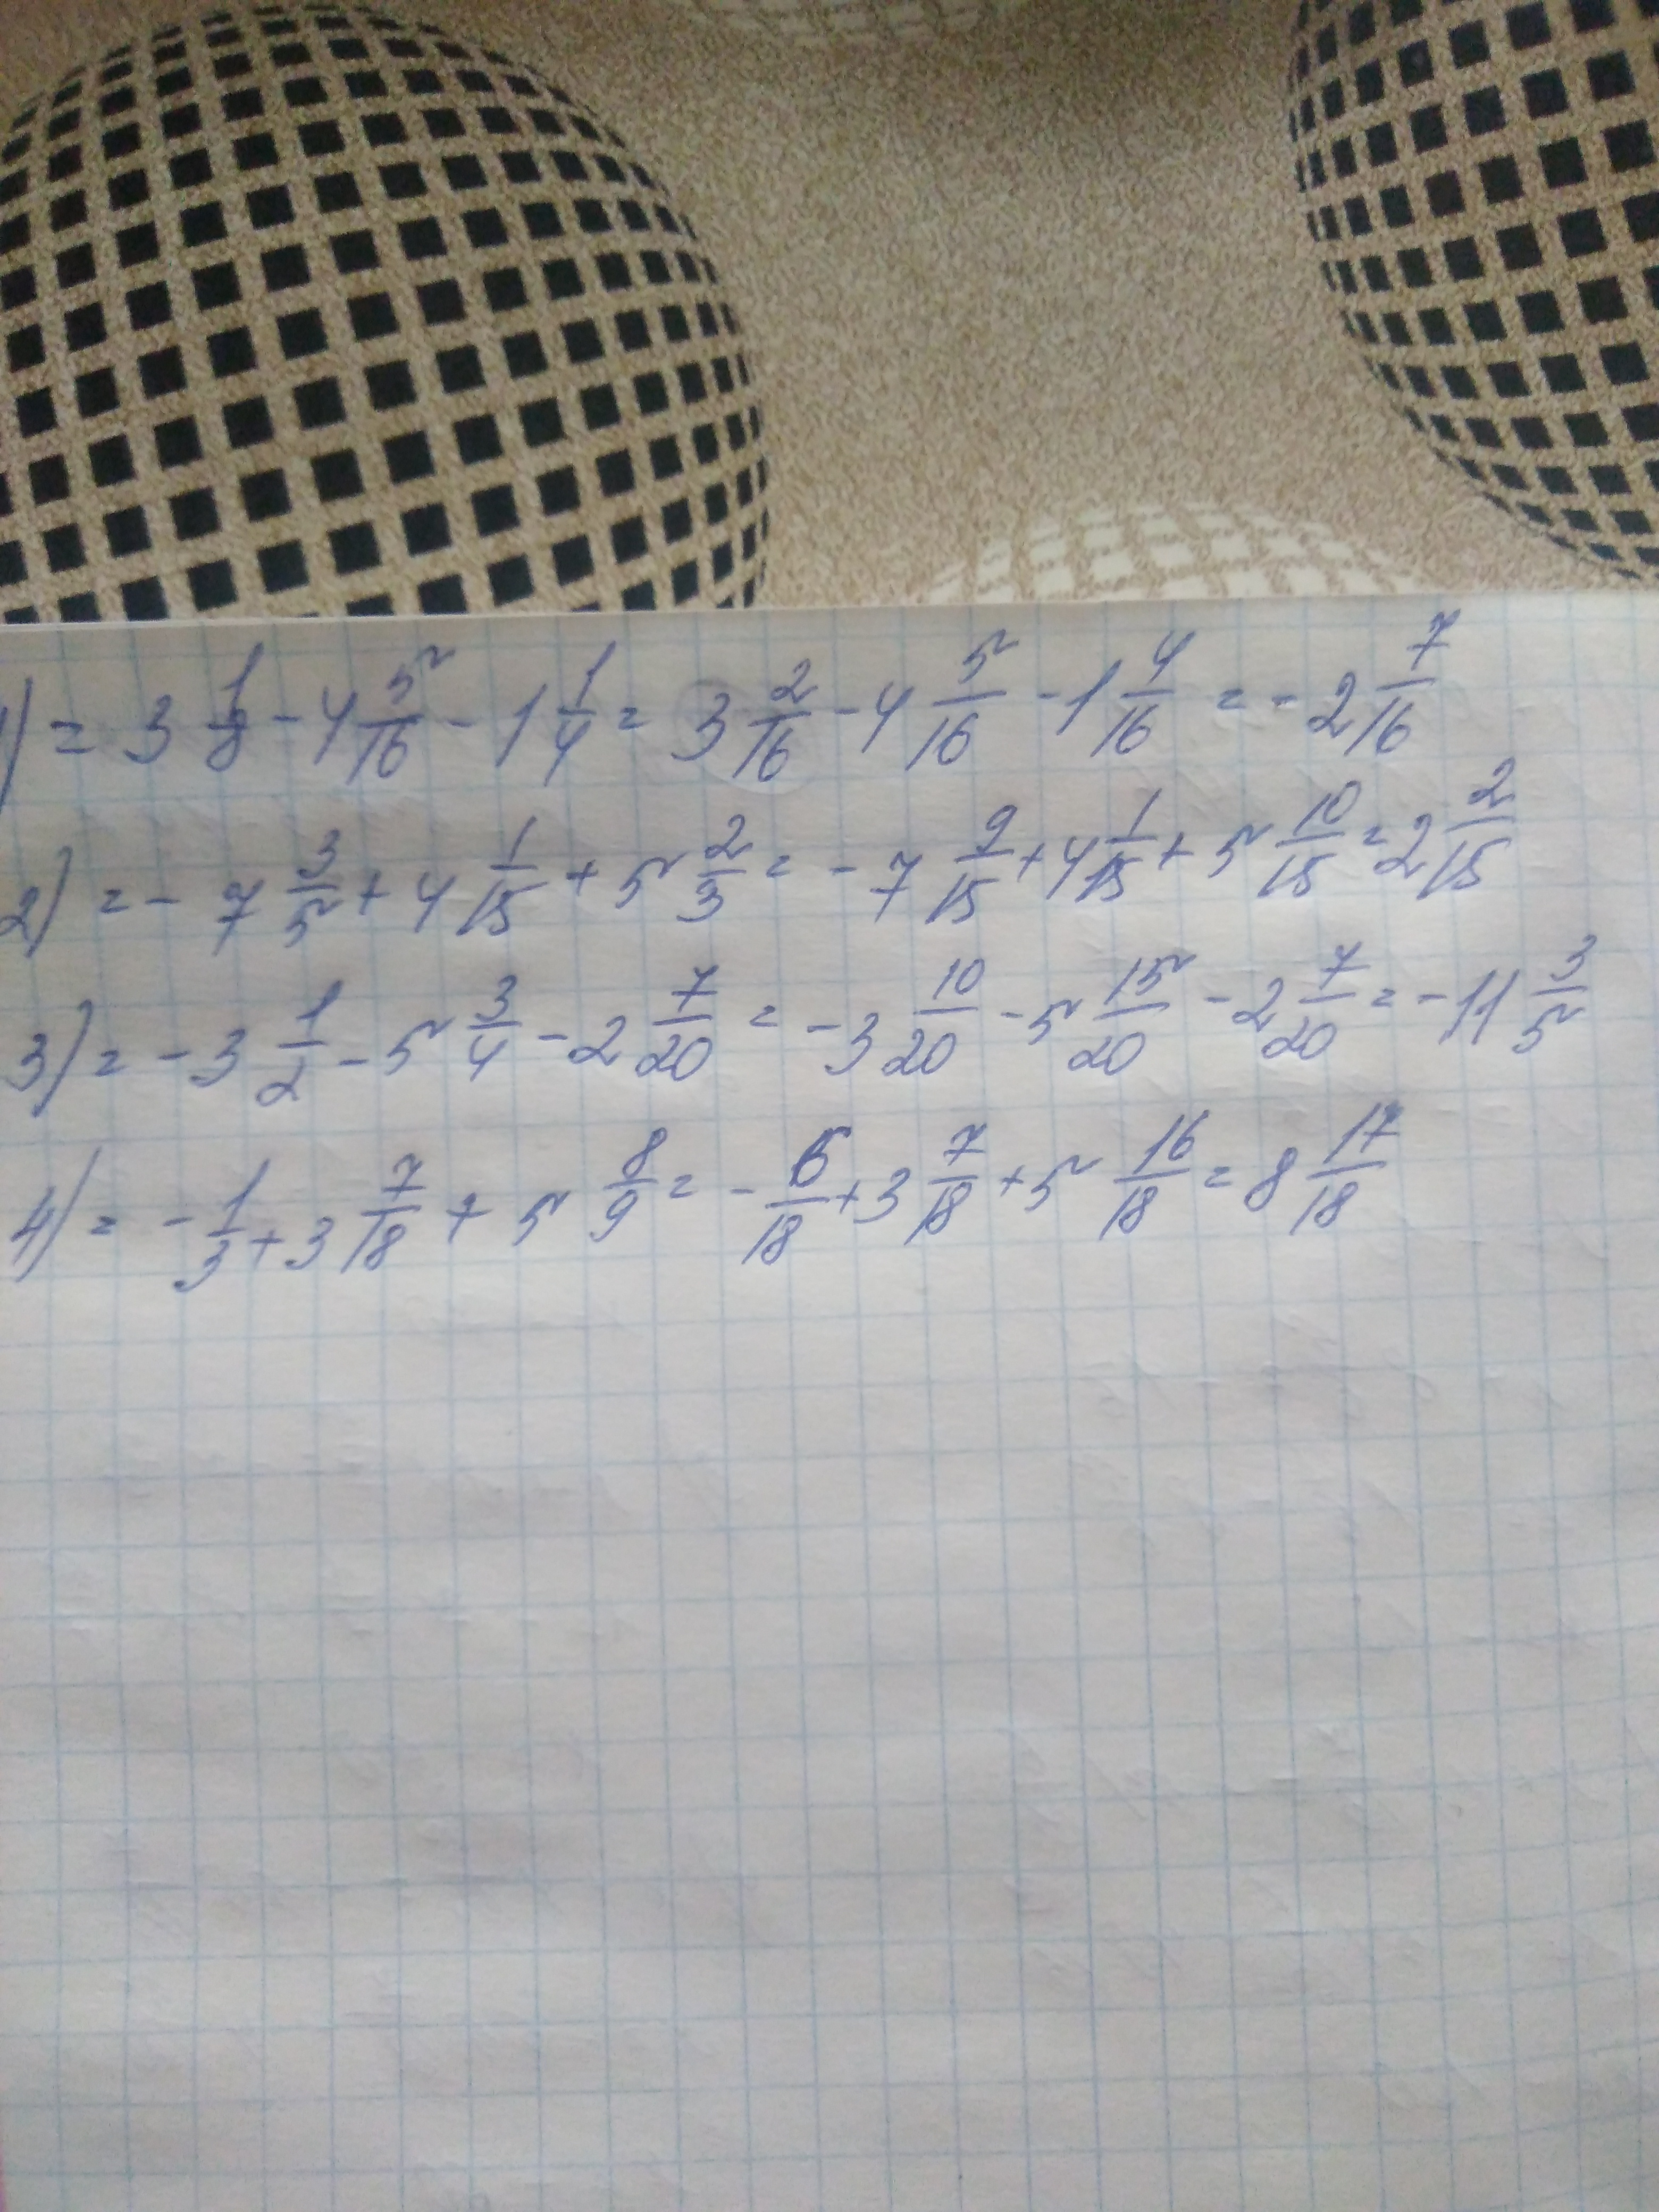 1) = 3 1/8 - 4 5/16 - 1 1/4 = 3 2/16 - 4 5/16 - 1 4/16 = - 2 7/16
2) = - 7 3/5 + 4 1/15 + 5 2/3 = - 7 9/15 + 4 1/15 + 5 10/15 = 2 2/15
3) = - 3 1/2 - 5 3/4 - 2 7/20 = - 3 10/20 - 5 15/20 - 2 7/20 = - 11 3/5
4) = - 1/3 + 3 7/18 + 5 8/9 = - 6/18 + 3 7/18 + 5 16/18 = 8 17/18